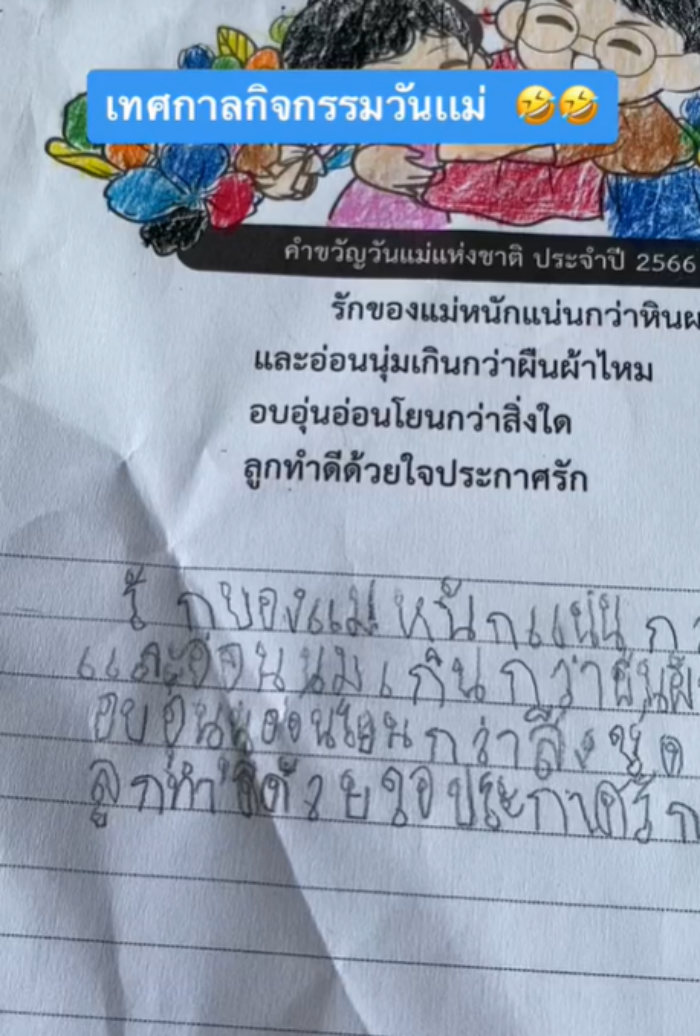 เทศกาลกิจกรรมวันแม่ 🤣🤣
คำขวัญวันแม่แห่งชาติ ประจำปี 2566
รักของแม่หนักแน่นกว่าหินผ
และอ่อนนุ่มเกินกว่าผืนผ้าไหม
อบอุ่นอ่อนโยนกว่าสิ่งใด
ลูกทำดีด้วยใจประกาศรัก
รักของแม่หนักแน่น
และอ่อนนุมเกินกว่าผืน
อบอุ่น กว่าสิ่ง
ลูกทำ ประกาศรัก